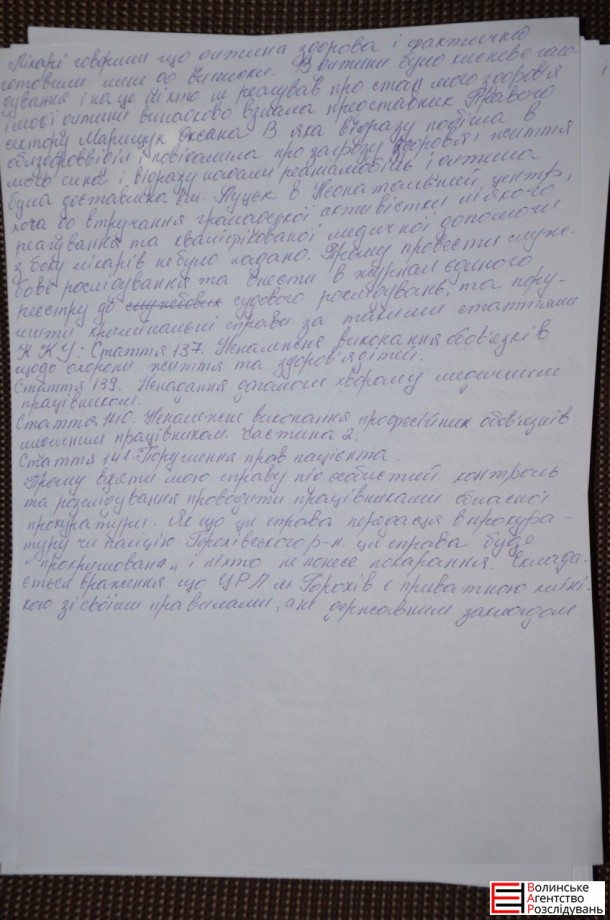 Лікарі говорили що дитина здорова і фактично
готовили мене до виписки. В дитини було кисневе голо
дування і на це ніхто не реагував про стан мого здоров'я
і моєї дитини випадково взнала представник Правого
сектору Марищук Оксана В. яка відразу поїхала в
облздороввідділ і повідомила про загрозу здоров'я і життя
мого сина і відразу виїхали реанімобіль і дитина
була доставлена в м. Луцьк в Неонатальний центр,
хоча до втручання громадської активістки ніякого
реагування та кваліфікованої медичної допомоги
з боку лікарів не було надано. Прошу провести служ-
бове розслідування та внести в журнал єдиного
реєстру до службових судового розслідувань, та пору-
шити кримінальні справи за такими статтями
К К У: Стаття 137. Неналежне виконання обов'язків
щодо охорони життя та здоров'я дітей.
Стаття 139. Ненадання допомоги хворому медичним
працівником.
Стаття 140. Неналежне виконання професійних обов'язків
медичним працівником. Частина 2.
Стаття 141. Порушення прав пацієнта.
Прошу взяти мою справу під особистий контроль
та розслідування проводити працівниками обласної
прокуратури. Якщо ця справа передасця в прокура-
туру чи поліцію Горохівського р-н. ця справа буде
"прокримована" і ніхто не понесе покарання. Склада-
ється враження що ЦРЛ м. Горохів є приватною кліні-
кою зі своїми правилами, а не державним закладом
Волинське
Агентство
Розслідувань